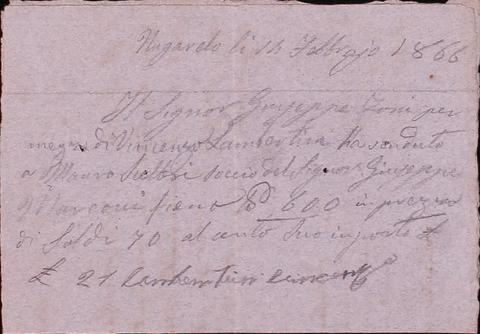 li 14 Febbrajo 1866
Il Signor Giuseppe Zoni per
mezzo di Vincenzo Lambertini ha venduto
a Mauro soccio del Signor Giuseppe
Marconi fieno 600 in prezzo
di Soldi 70 al cento Suo importo £
£ 21 Lambertini Vincenzo